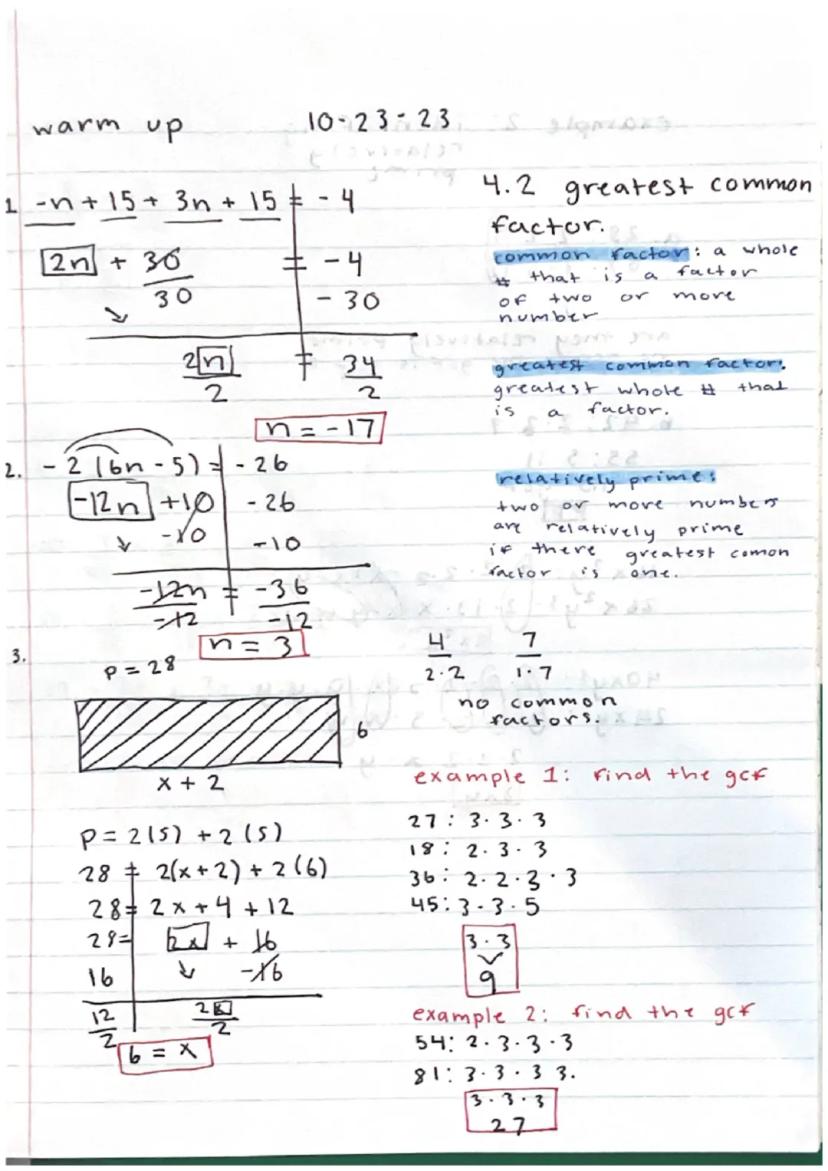 warm up 10-23-23
1 -n + 15 + 3n + 15 = -4
2n + 30 = -4
30 - 30
2n = 34
2 2
n = -17
2. -2 (6n - 5) = -26
-12n + 10 -26
-10 -10
-12n = -36
-12 -12
n = 3
3.
P = 28
6
x + 2
P = 2(5) + 2(5)
28 = 2(x+2) + 2(6)
28 = 2x + 4 + 12
28 = 2x + 16
16 -16
12 2x
2 2
6 = x
4.2 greatest common
factor.
common factor: a whole
# that is a factor
of two or more
number
greatest common factor:
greatest whole # that
is a factor.
relatively prime:
two or more numbers
are relatively prime
if there greatest comon
factor is one.
4 7
2·2 1·7
no common
factors.
example 1: find the gcf
27: 3·3·3
18: 2·3·3
36: 2·2·3·3
45: 3·3·5
3·3
9
example 2: find the gcf
54: 2·3·3·3
81: 3·3·3 3.
3·3·3
27